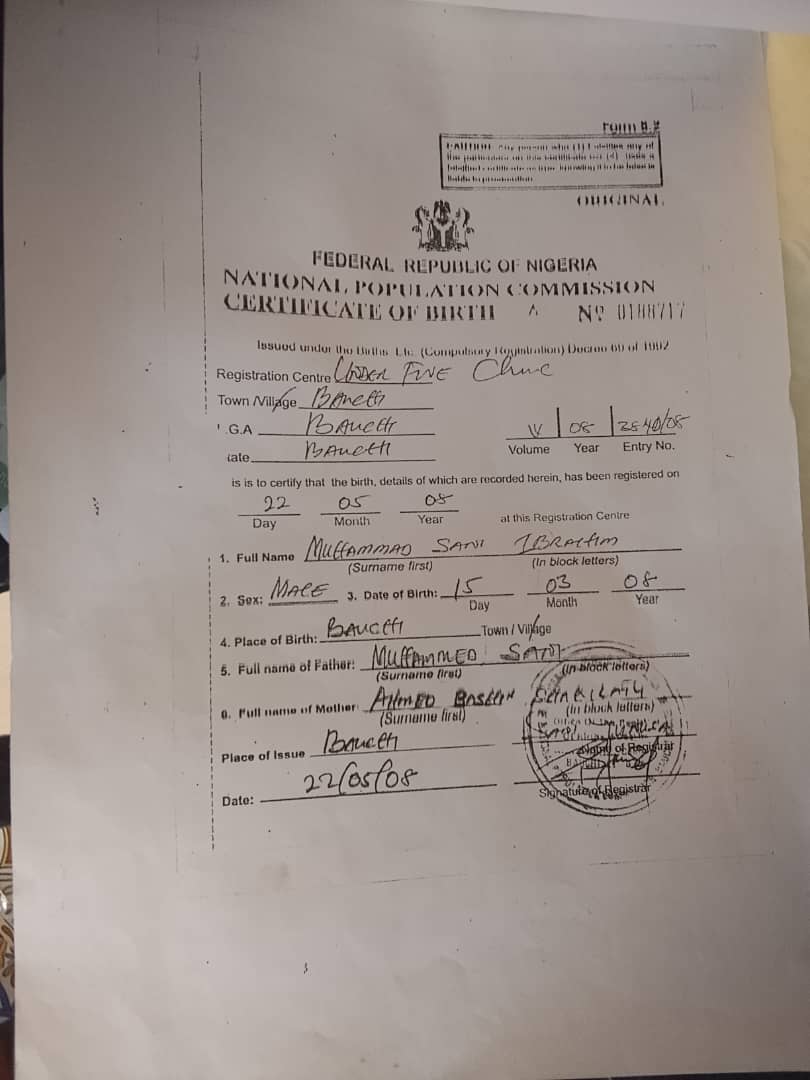 Form B.2
CAUTION: Any person who (1)
the particulars on this certificate
ORIGINAL
FEDERAL REPUBLIC OF NIGERIA
NATIONAL POPULATION COMMISSION
CERTIFICATE OF BIRTH A Nº 0188717
Issued under the Births Etc. (Compulsory Registration) Decree 69 of 1992
Registration Centre UNDER FIVE Clinic
Town /Village BAUCHI
.G.A BAUCHI
tate BAUCHI
IV 08 2540/08
Volume Year Entry No.
is is to certify that the birth, details of which are recorded herein, has been registered on
22 05 08
Day Month Year at this Registration Centre
1. Full Name MUHAMMAD SANI IBRAHIM
(Surname first) (In block letters)
2. Sex: MALE 3. Date of Birth: 15 03 08
Day Month Year
4. Place of Birth: BAUCHI Town / Village
5. Full name of Father: MUHAMMED SANI
(Surname first) (In block letters)
6. Full name of Mother AHMED
(Surname first) (In block letters)
Place of Issue BAUCHI
of Registrar
Date: 22/05/08
Signature of Registrar